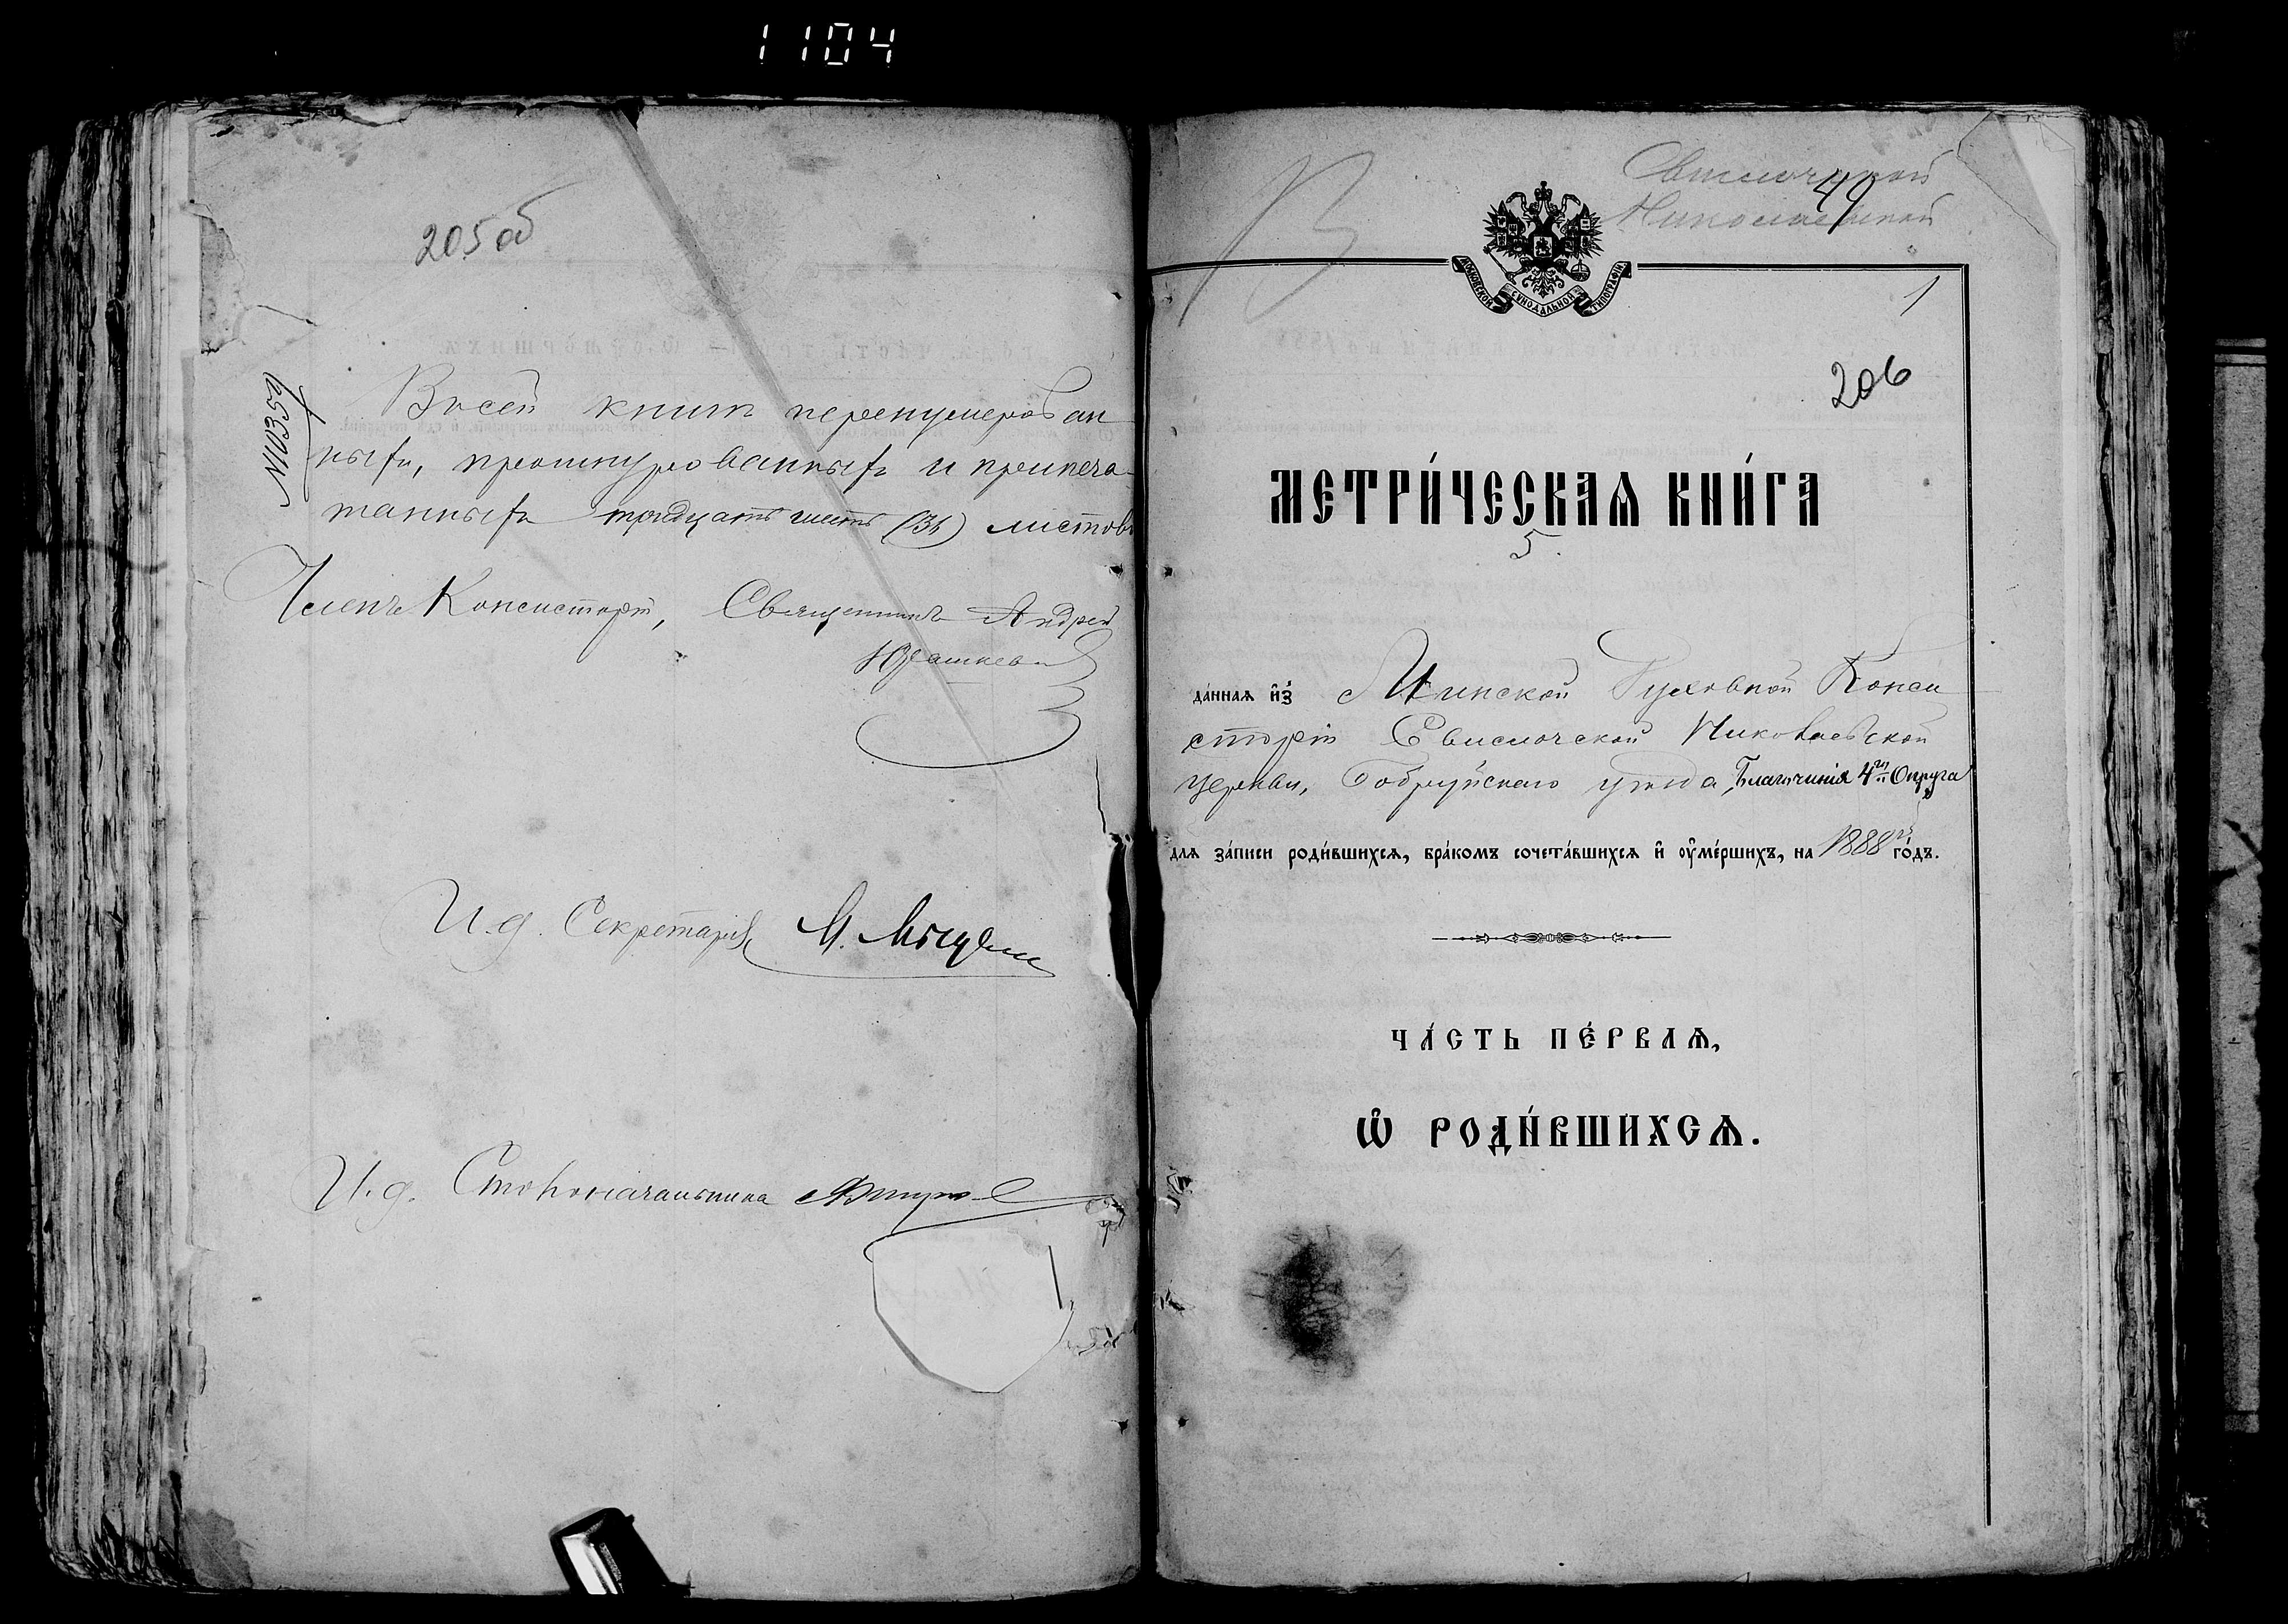 1104
205об
№10359
В сей книгѣ перенумерован
ныхъ, прошнурованныхъ и припеча-
танныхъ тридцать шесть (36) листовъ
Членъ Консисторіи, Священникъ Андрей
Юрашкевичъ
И. д. Секретаря М.
И. д. Столоначальника
Свислочской
Николаевской
49
МОСКОВСКОЙ СѴНОДАЛЬНОЙ ТИПОГРАФІИ
1
206
МЕТРИ́ЧЕСКАѦ КНИ́ГА
5.
да́ннаѧ и҆з̾ Минской Духовной Конси
сторіи Свислочской Николаевской
церкви, Бобруйскаго уѣзда, Благочинія 4го Округа
для за́писи роди́вшихсѧ, бра́комъ сочета́вшихсѧ и҆ оу҆ме́ршихъ, на 1888й го́дъ.
ЧА́СТЬ ПЕ́РВАѦ,
Ѽ РОДИ́ВШИХСѦ.